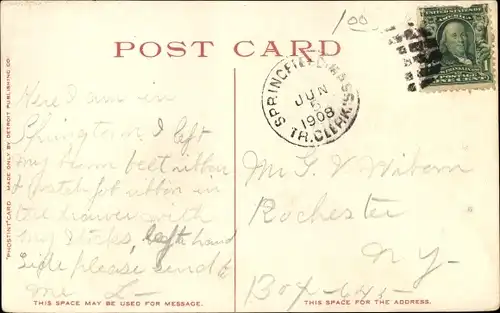 1 00
POST CARD
UNITED STATES OF AMERICA
1
SPRINGFIELD, MASS.
JUN
5
1908
TR. CLERK'S
"PHOSTINT" CARD MADE ONLY BY DETROIT PUBLISHING CO.
Here I am in
I left
my brown belt ribbon
& ribbon in
the drawer with
my Stocks, left hand
side please send to
me L-
Mr G. V
Rochester
N.Y-
Box 645-
THIS SPACE MAY BE USED FOR MESSAGE.
THIS SPACE IS FOR THE ADDRESS.